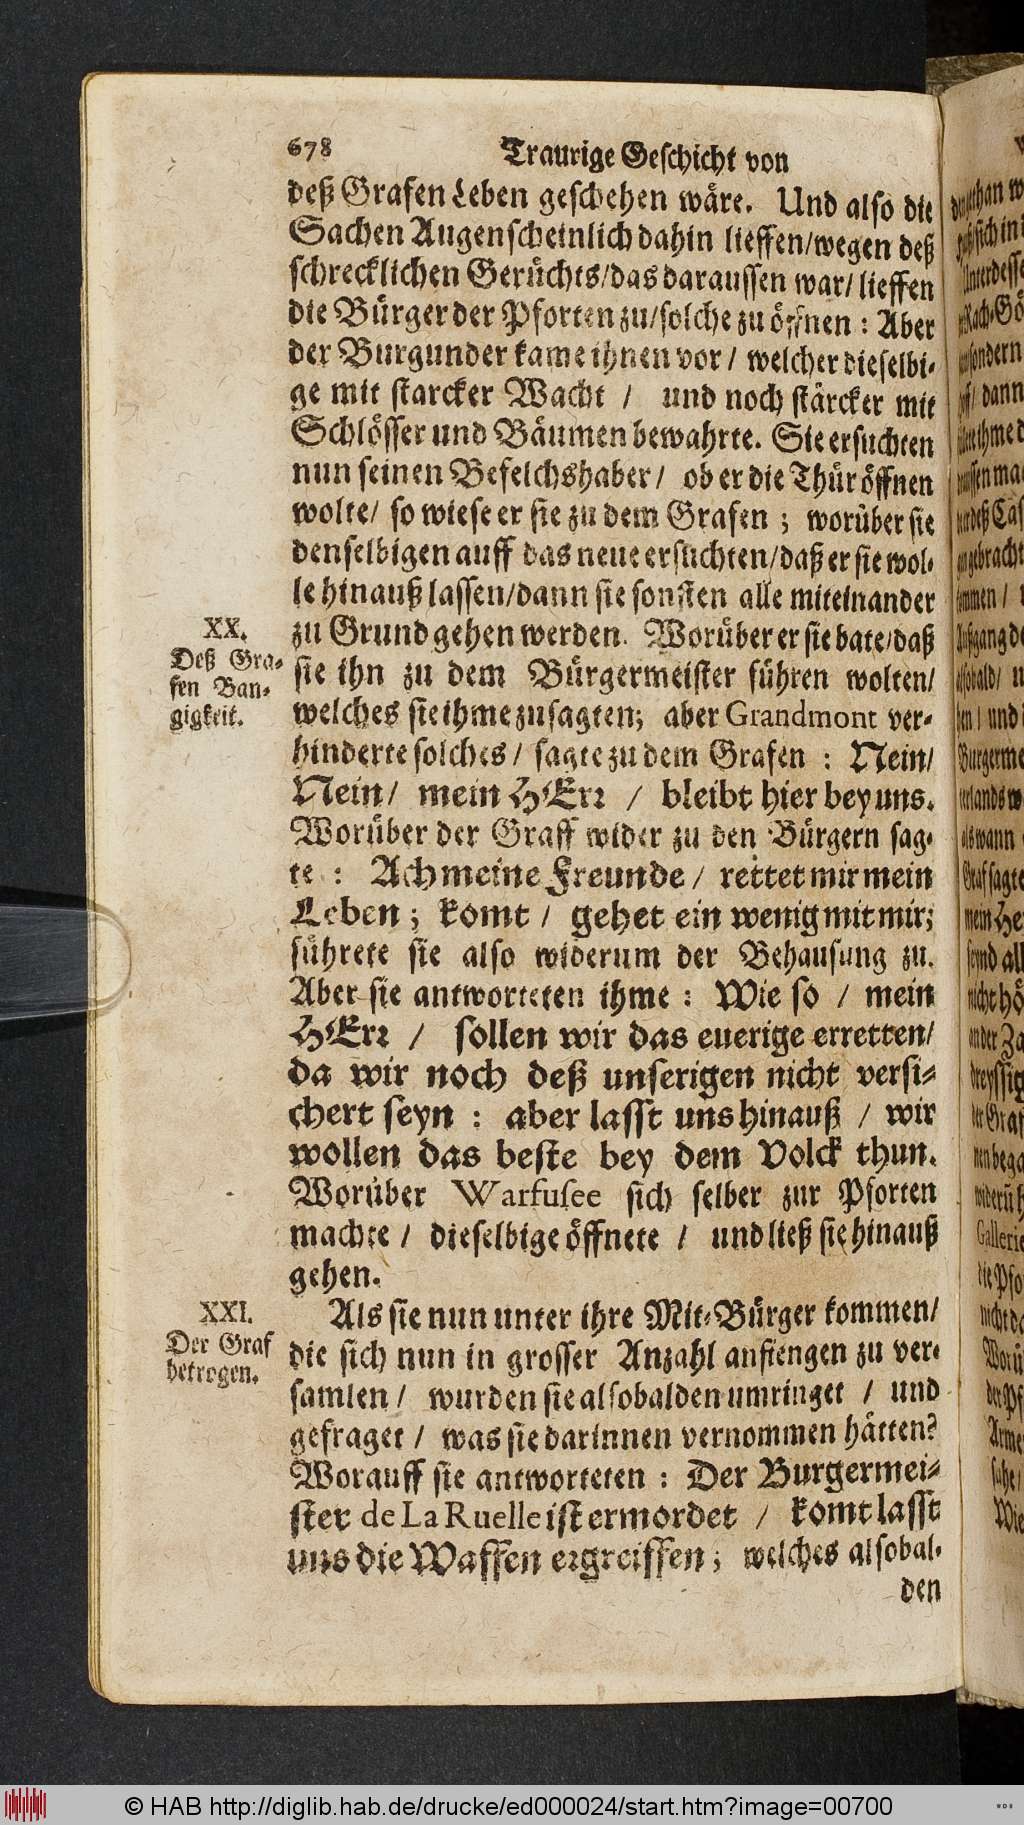 678 Traurige Geschicht von
deß Grafen Leben geschehen wäre. Und also die
Sachen Augenscheinlich dahin lieffen/wegen deß
schrecklichen Gerüchts/das daraussen war/ lieffen
die Bürger der Pforten zu/solche zu öffnen : Aber
der Burgunder kame ihnen vor / welcher dieselbi-
ge mit starcker Wacht / und noch stärcker mit
Schlösser und Bäumen bewahrte. Sie ersuchten
nun seinen Befelchshaber / ob er die Thür öffnen
wolte/ so wiese er sie zu dem Grafen ; worüber sie
denselbigen auff das neue ersuchten/daß er sie wol-
le hinauß lassen/dann sie sonsten alle miteinander
zu Grund gehen werden. Worüber er sie bate/daß
sie ihn zu dem Bürgermeister führen wolten/
welches sie ihme zusagten; aber Grandmont ver-
hinderte solches / sagte zu dem Grafen : Nein/
Nein/ mein HErr / bleibt hier bey uns.
Worüber der Graff wider zu den Bürgern sag-
te : Ach meine Freunde / rettet mir mein
Leben ; komt / gehet ein wenig mit mir;
führete sie also widerum der Behausung zu.
Aber sie antworteten ihme : Wie so / mein
HErr / sollen wir das euerige erretten/
da wir noch deß unserigen nicht versi-
chert seyn : aber lasst uns hinauß / wir
wollen das beste bey dem Volck thun.
Worüber Warfusee sich selber zur Pforten
machte / dieselbige öffnete / und ließ sie hinauß
gehen.
XX.
Deß Gra-
fen Ban-
gigkeit.
Als sie nun unter ihre Mit-Bürger kommen/
die sich nun in grosser Anzahl anfiengen zu ver-
samlen / wurden sie alsobalden umringet / und
gefraget / was sie darinnen vernommen hätten?
Worauff sie antworteten : Der Burgermei-
ster de La Ruelle ist ermordet / komt lasst
uns die Waffen ergreiffen ; welches alsobal-
den
XXI.
Der Graf
betrogen.
© HAB http://diglib.hab.de/drucke/ed000024/start.htm?image=00700